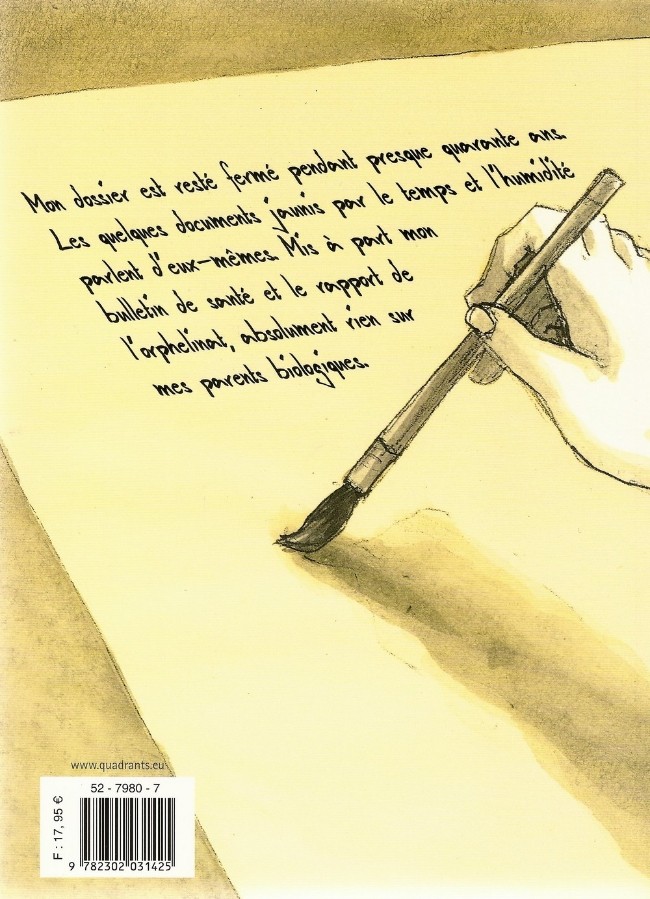 Mon dossier est resté fermé pendant presque quarante ans.
Les quelques documents jaunis par le temps et l'humidité
parlent d'eux-mêmes. Mis à part mon
bulletin de santé et le rapport de
l'orphelinat, absolument rien sur
mes parents biologiques.
www.quadrants.eu
52 - 7980 - 7
F : 17,95 €
9 782302 031425